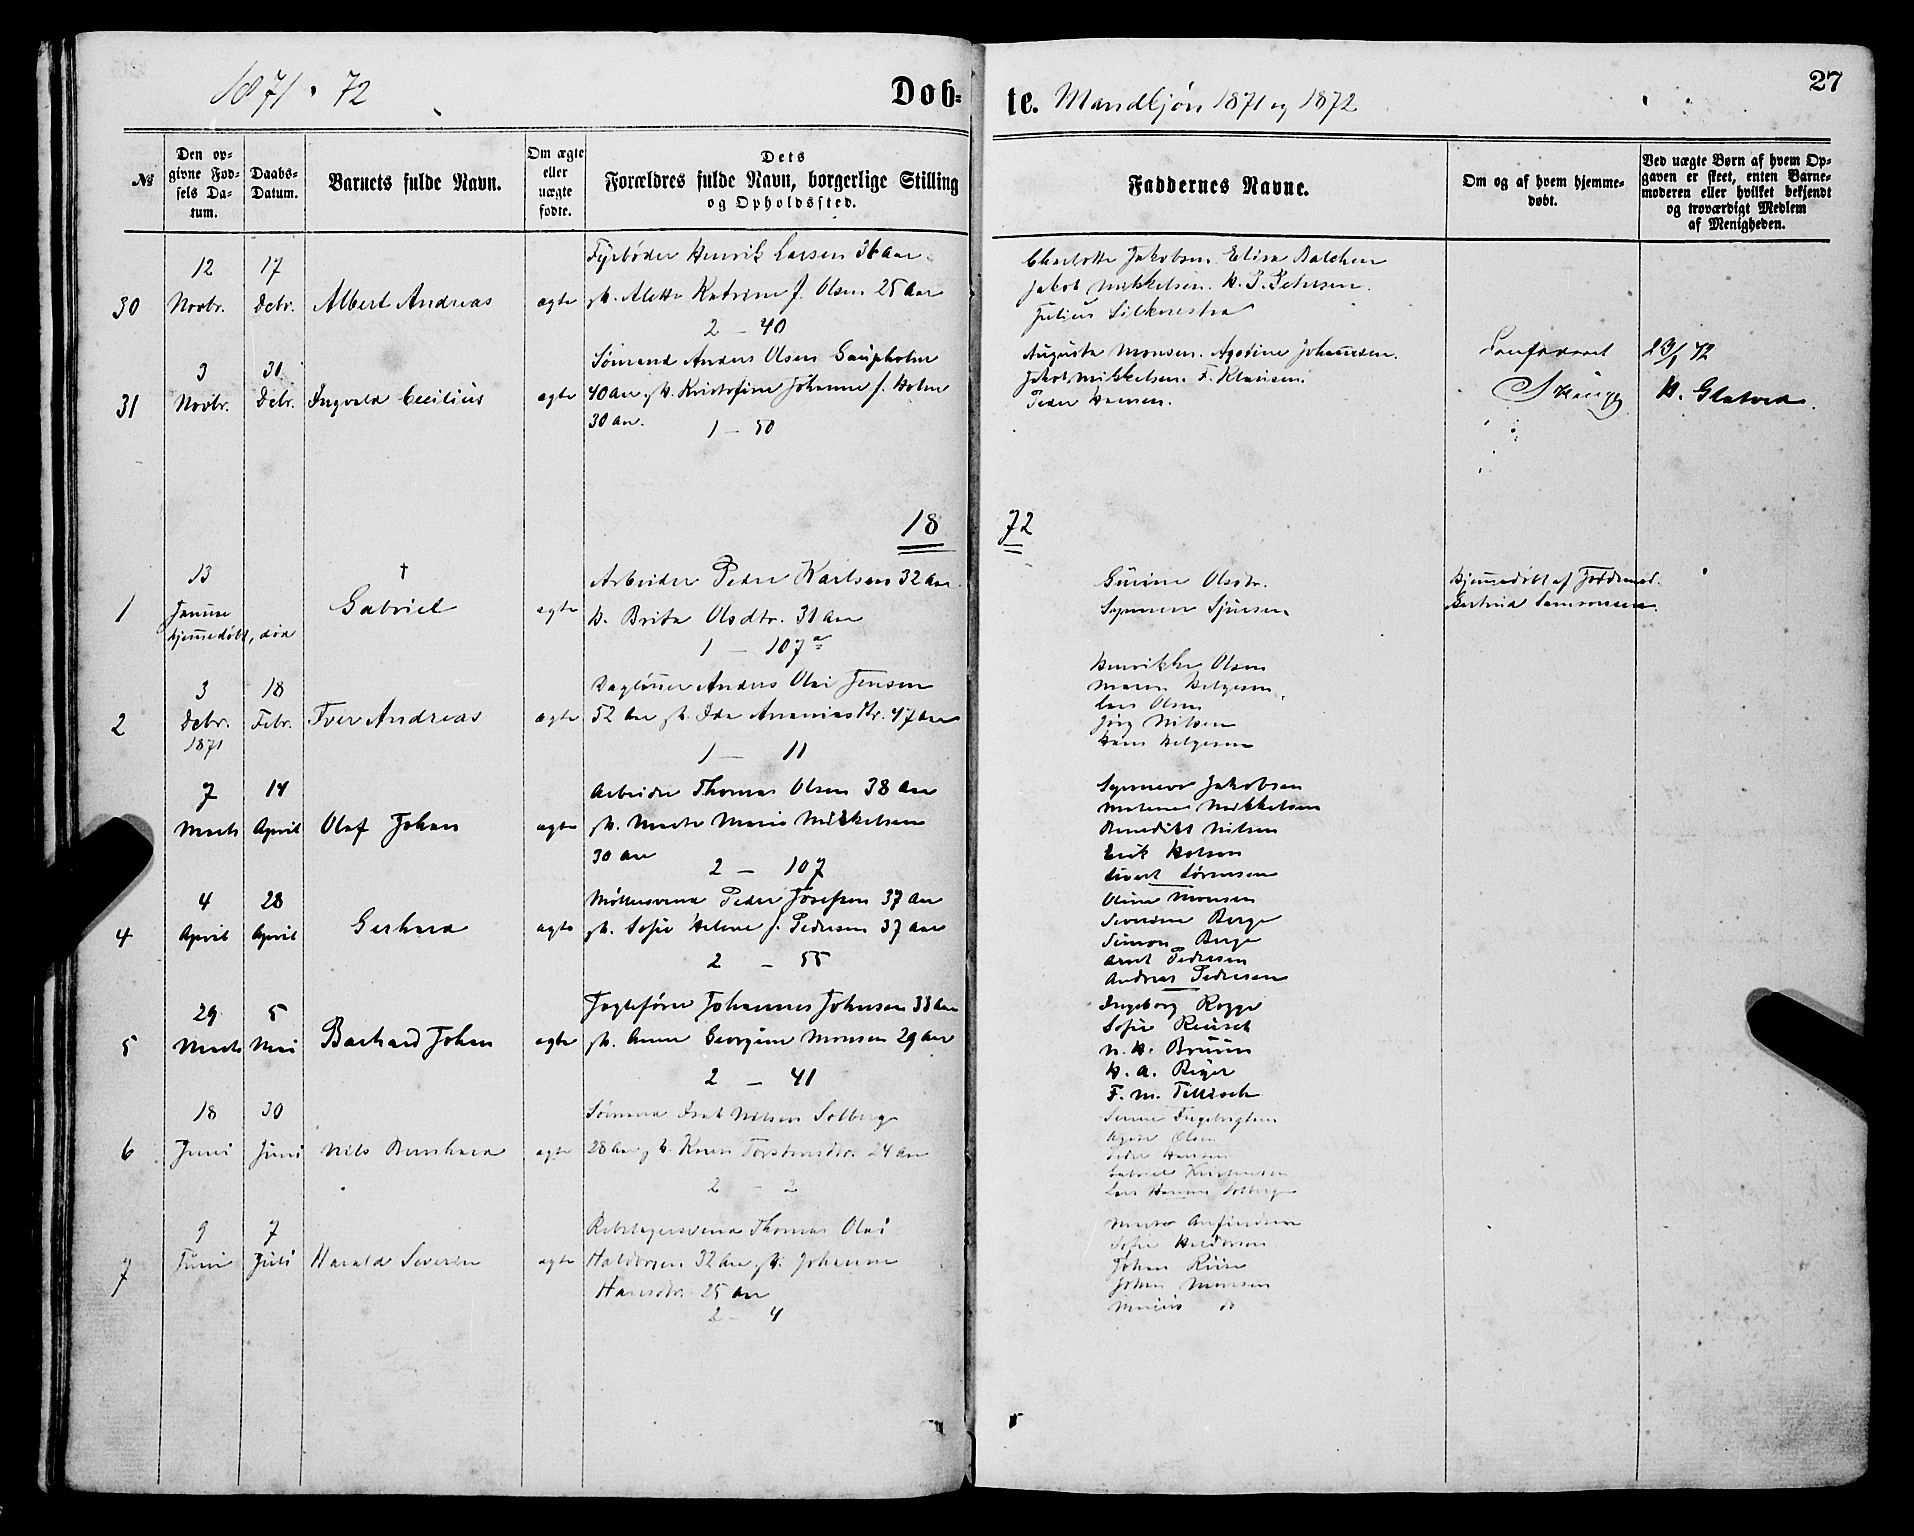 1871 . 72
Døb=
te. Mandkjøn 1871 og 1872
27
№
Den op-
givne Fød-
sels Da-
tum.
Daabs-
Datum.
Barnets fulde Navn.
Om ægte
eller
uægte
fødte.
Dets
Forældres fulde Navn, borgerlige Stilling
og Opholdssted.
Faddernes Navne.
Om og af hvem hjemme-
døbt.
Ved uægte Børn af hvem Op-
gaven er skeet, enten Barne-
moderen eller hvilket bekjendt
og troværdigt Medlem
af Menigheden.
30
12
Novbr.
17
Debr.
Albert Andreas
ægte
Fyrbøder Henrik Larsen 36 Aar
H. Alette Katrine f. Olsen 25 Aar
2 - 40
Charlotte Jakobsen. Elisa Balchen
Jakob Mikkelsen. H. P. Petersen.
Julius
31
3
Novbr.
31
Debr.
Ingvald Cecilius
ægte
Sømand Anders Olsen Gaupholm
40 Aar, H. Kristofine Johanne f. Holm
30 Aar.
1 - 50
Augusta Monsen. Johannesen.
Jakob Mikkelsen. F. Klausen.
Peder Hansen.
23/1 72
H. Glatved.
18
72
1
13
Januar
hjemmedøbt, død
†
Gabriel
ægte
Arbeider Peder Karlsen 32 Aar.
H. Brita Olsdtr. 31 Aar
1 - 107 a
Gurine Olsdtr.
Hjemmedøbt af Jordemod.
Gertrud Samsonsen.
2
3
Debr.
1871
18
Febr.
Iver Andreas
ægte
Dagløner Anders Olai Jensen
52 Aar, H. Ida Ananiasdtr. 47 Aar
1 - 11
Henrikke Olsen
Maren Helgesen
Lars Olsen
Jørg Nilsen
Hans Helgesen
7
Marts
14
April
Olaf Johan
ægte
Arbeider Thomas Olsen 38 Aar
H. Marte Marie Mikkelsen
30 Aar
2 - 107
Synneve Jakobsen
Malene Mikkelsen
Benedikt Nilsen
Erik
Sivert Sørensen
4
4
April
28
April
Gerhard
ægte
Møllersvend Peder Josefsen 37 Aar
H. Sofie Helene f. Pedersen 37 Aar
2 - 55
Oline Monsen
Severine Berge
Simon Berge
Arnt Pedersen
Andreas Pedersen
5
29
Marts
5
Mai
Barhard Johan
ægte
Jagtefører Johannes Johnsen 33 Aar
H. Anne Georgine Monsen 29 Aar
2 - 41
Ingeborg Rogge
Sofie Reusch
N. H. Bruun
H. A.
F. M. Tillisch
6
18
Juni
30
Juni
Nils Bernhard
ægte
Sømand Isak Nilsen Solberg
28 Aar, H. Karen Torstensdtr. 24 Aar
2 - 2
Olsen
Peder Hansen
Gabriel Kristensen
Lars Hansen Solberg
7
9
Juni
7
Juli
Harald Severin
ægte
Rebslagersvend Thomas Olai
Haldorsen 32 Aar, H. Johanne
Hansdtr. 25 Aar
2 - 4
Marta Anfindsen
Sofie Haldorsen
Johan
Johan Monsen
Marius do